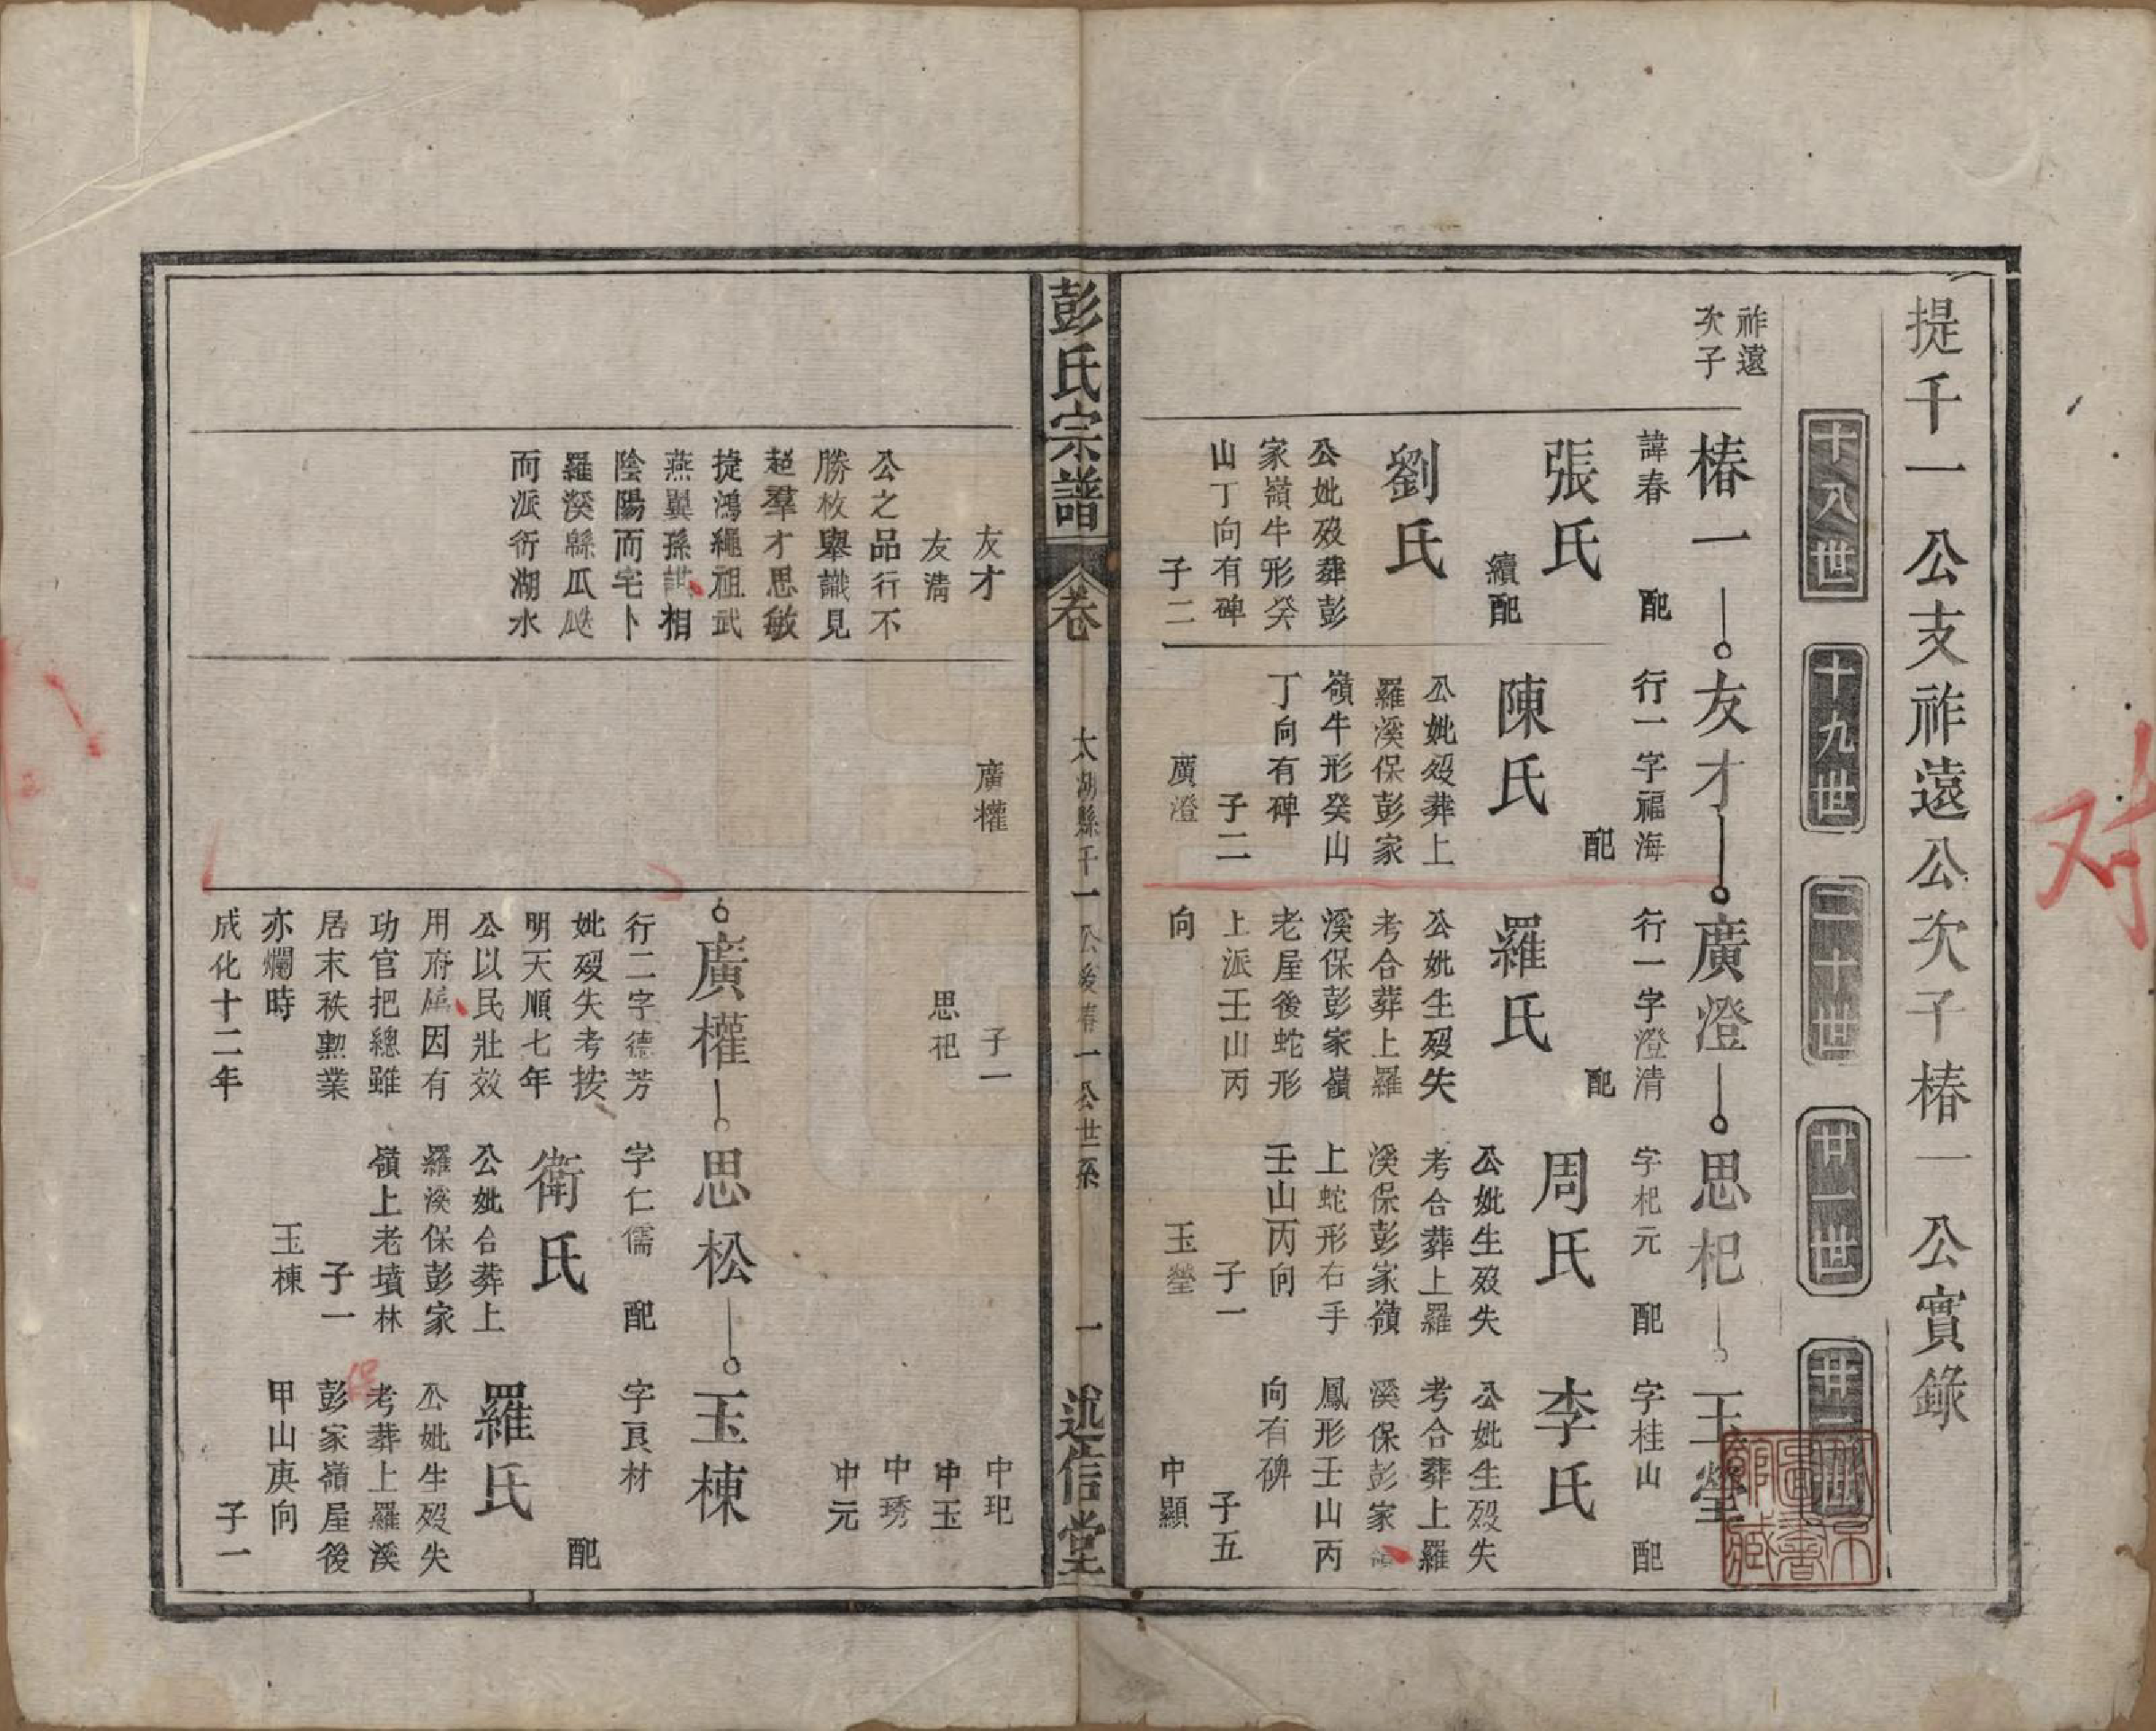 提千一公支祚遠公次子椿一公實錄
十八世
十九世
二十世
廿一世
廿二世
祚遠
次子
椿一
諱春 配
張氏
續配
劉氏
公妣歿葬彭
家嶺牛形癸
山丁向有碑
子二
友才
友清
公之品行不
勝枚舉識見
超羣才思敏
捷鴻繩祖武
燕翼孫謀相
陰陽而宅卜
羅溪緜瓜瓞
而派衍湖水
友才
行一字福海
配
陳氏
公妣歿葬上
羅溪保彭家
嶺牛形癸山
丁向有碑
子二
廣澄
廣權
廣澄
行一字澄清
配
羅氏
公妣生歿失
考合葬上羅
溪保彭家嶺
老屋後蛇形
上派壬山丙
向
子一
思杞
思杞
字杞元 配
周氏
公妣生歿失
考合葬上羅
溪保彭家嶺
上蛇形右手
壬山丙向
子一
玉瑩
玉瑩
字桂山 配
李氏
公妣生歿失
考合葬上羅
溪保彭家嶺
鳳形壬山丙
向有碑
子五
中顯
中玘
中玉
中琇
中元
彭氏宗譜
卷
太湖縣千一公後椿一公世系
一
述信堂
廣權
行二字德芳
妣歿失考按
明天順七年
公以民壯效
用府廨因有
功官把總雖
居末秩勲業
亦爛時
成化十二年
思松
字仁儒 配
衛氏
公妣合葬上
羅溪保彭家
嶺上老墳林
子一
玉棟
玉棟
字良材
配
羅氏
公妣生歿失
考葬上羅溪
保
彭家嶺屋後
甲山庚向
子一
对